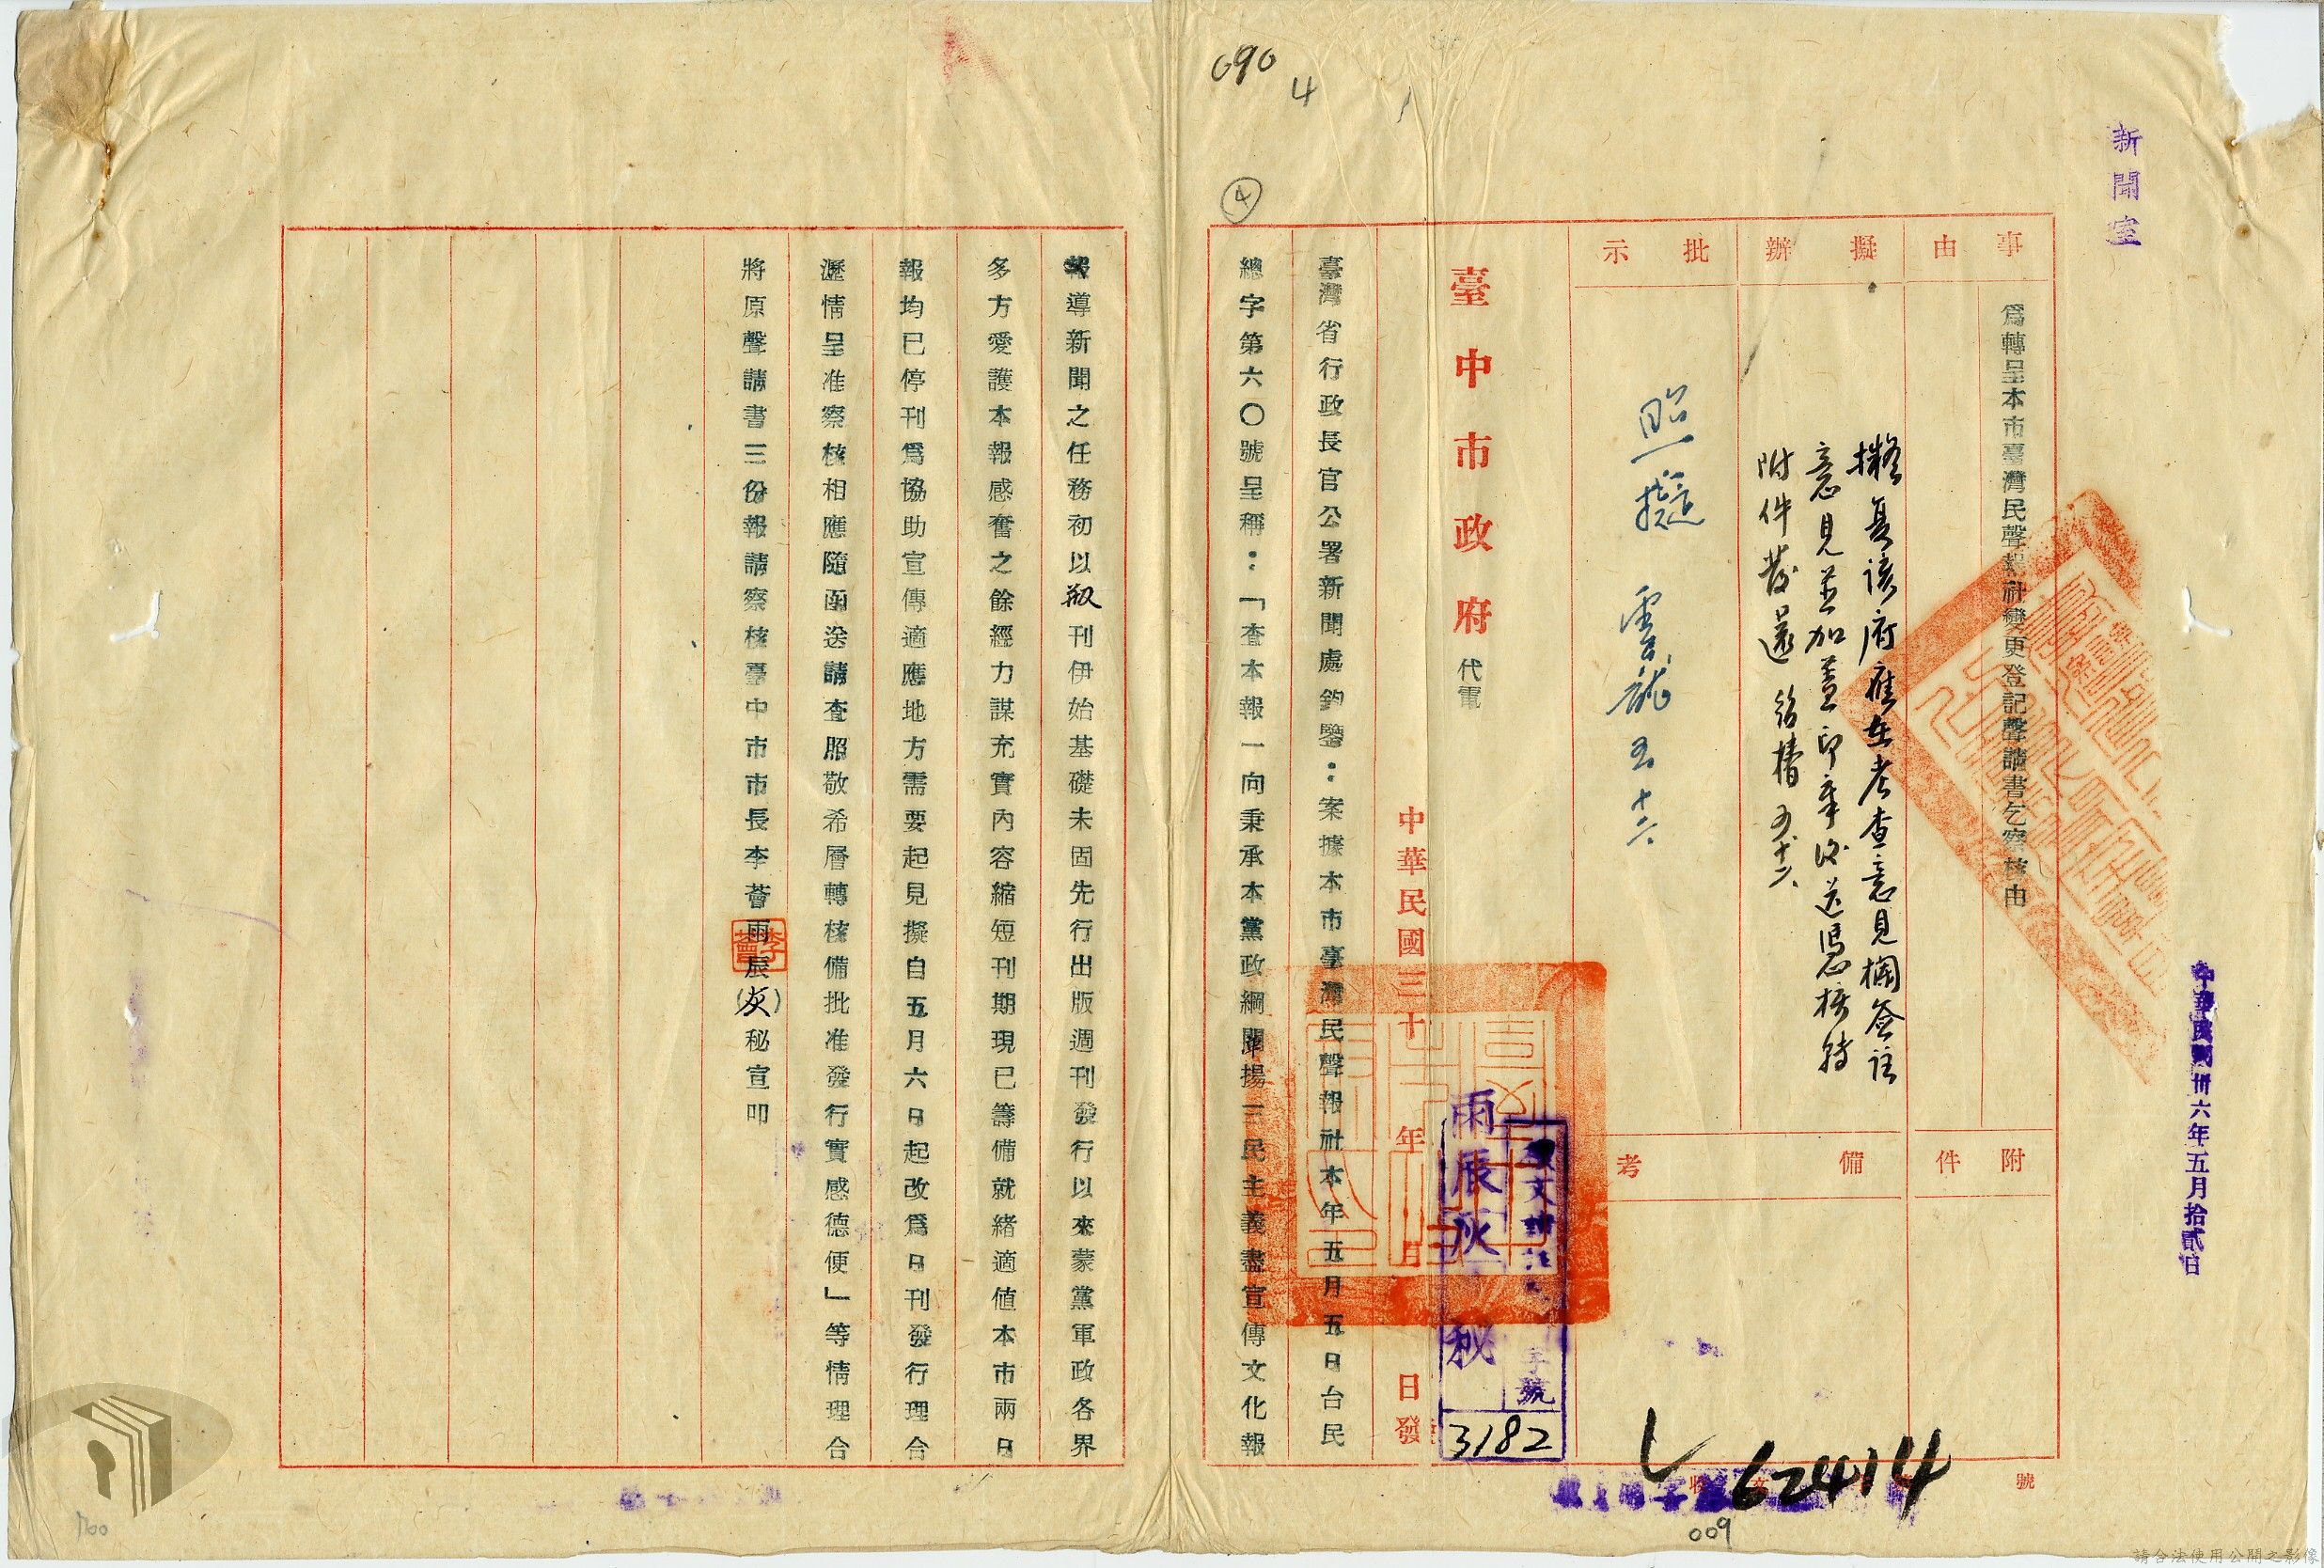 新聞室
中華民國卅六年五月拾貳日
090
4
④
事由
擬辦
批示
附件
備考
為轉呈本市臺灣民聲報社變更登記聲請書乞察核由
擬復該府應在考查意見欄簽註
意見並加蓋印章後送憑核轉
附件發還
照擬
臺中市政府
代電
中華民國三十 年 月 日發
雨辰灰 秘
字號
3182
臺灣省行政長官公署新聞處鈞鑒：案據本市臺灣民聲報社本年五月五日台民
總字第六〇號呈稱：「查本報一向秉承本黨政綱闡揚三民主義盡宣傳文化報
報導新聞之任務初以報刊伊始基礎未固先行出版週刊發行以來蒙黨軍政各界
多方愛護本報感奮之餘經力謀充實內容縮短刊期現已籌備就緒適值本市兩日
報均已停刊為協助宣傳適應地方需要起見擬自五月六日起改為日刊發行理合
瀝情呈准察核相應隨函送請查照敬希層轉核備批准發行實感德便」等情理合
將原聲請書三份報請察核臺中市市長李薈雨辰(灰)秘宣叩
李薈
收 文 號
62414
009
1700
請合法使用公開之影像